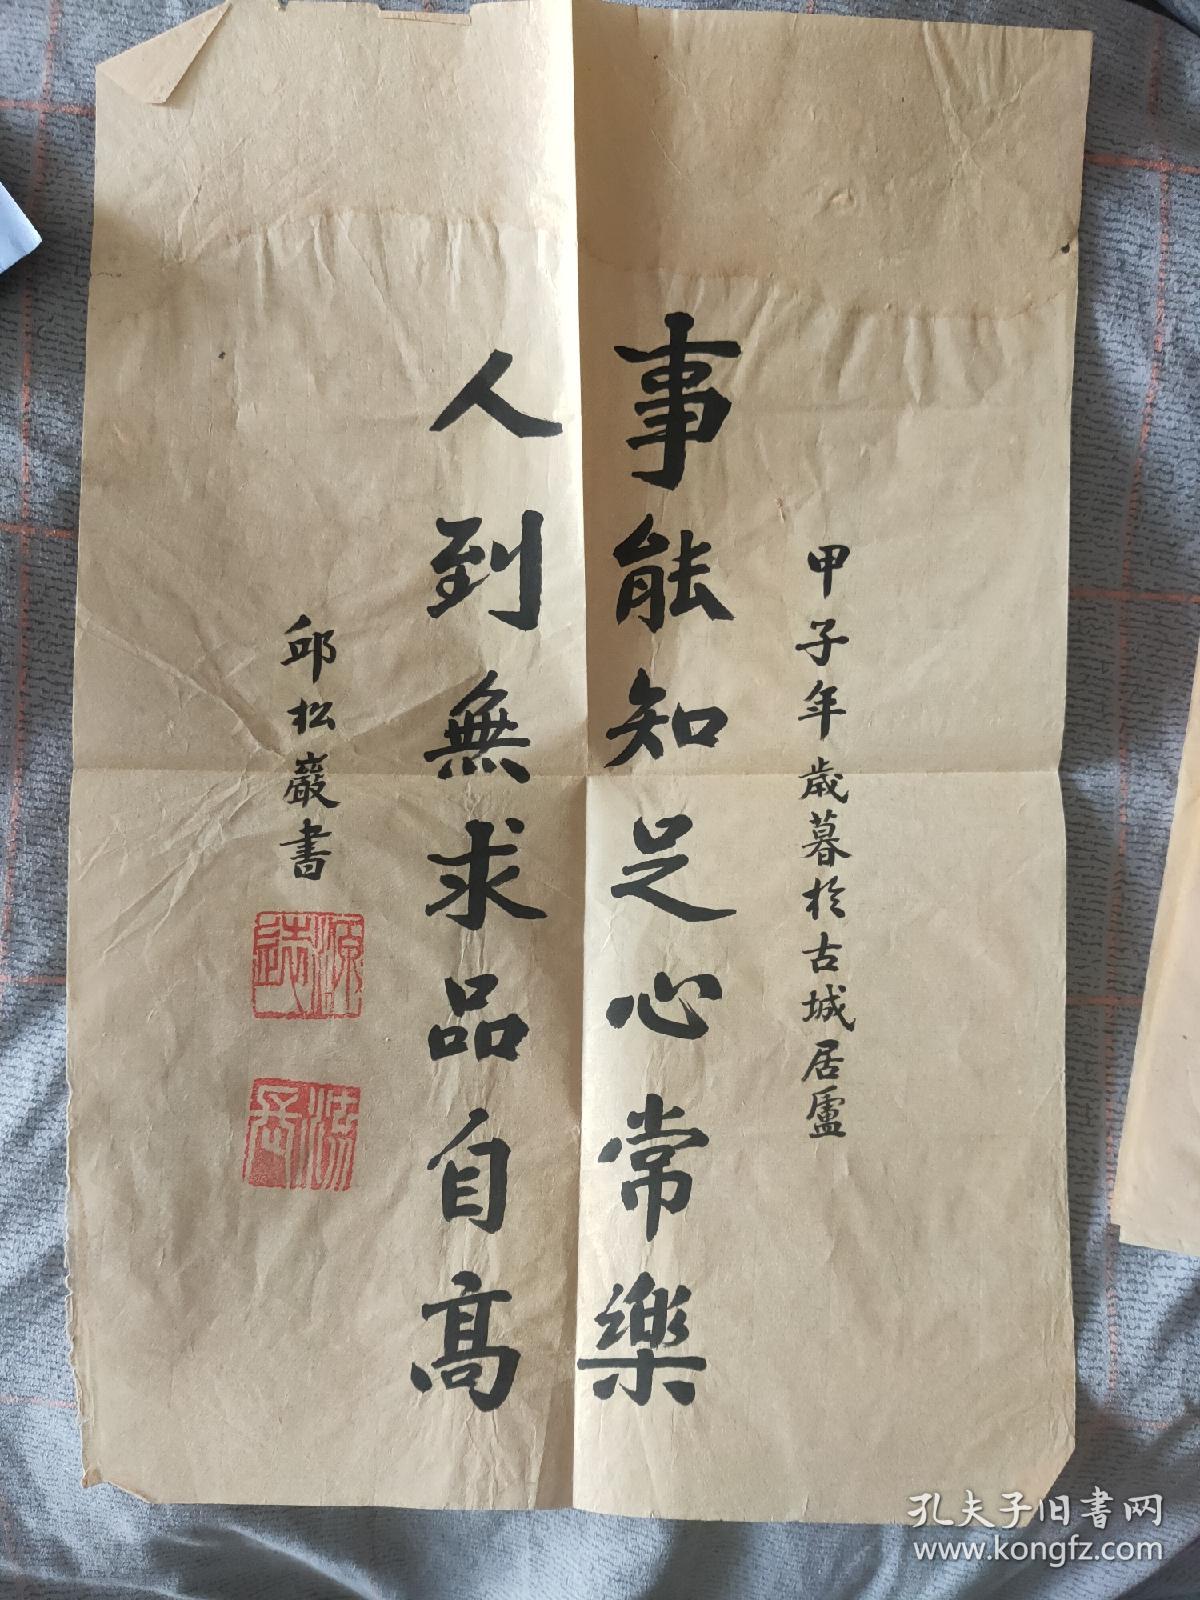 甲子年歲暮於古城居廬
事能知足心常樂
人到無求品自高
邱松巖書
孔夫子旧书网
www.kongfz.com